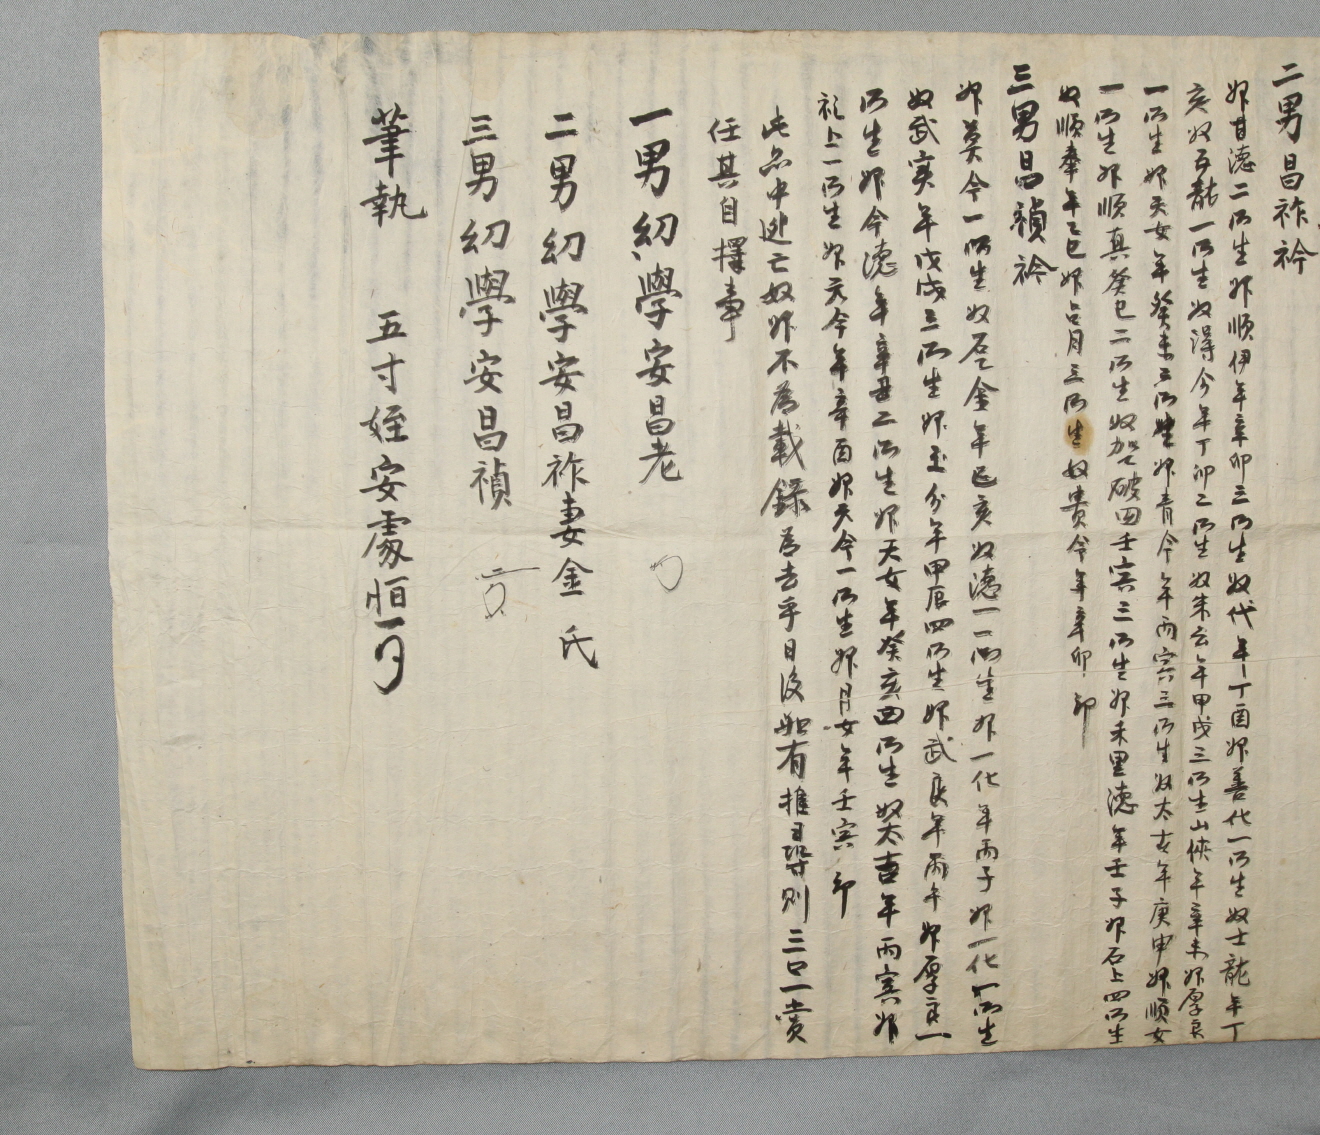 二男昌祚衿
婢甘德二所生婢順伊年辛卯三所生奴代年丁酉婢善代一所生奴士龍年丁
亥奴五龍一所生奴淂今年丁卯二所生奴朱云年甲戌三所生山俠年辛未婢厚良
一所生婢天女年癸未二所生婢青今年丙寅三所生奴太吉年庚申婢順女
一所生婢順真癸巳二所生奴破回壬寅三所生婢禾里德年壬子婢石上四所生
奴順奉年乙巳婢占月三所生奴貴今年辛卯 印
三男昌禎衿
婢莫今一所生奴石乙金年己亥奴德一一所生婢一化年丙子婢一化一所生
奴武実年戊戌三所生婢玉分年甲辰四所生婢武良年丙午婢厚良一
所生婢今德年辛丑二所生婢天女年癸亥四所生奴太吉年丙寅婢
礼上一所生婢元今年辛酉婢天今一所生婢月女年壬寅 印
此亦中逃亡奴婢不爲載錄爲去乎日後如有推尋則三口一賞
任其自擇事
一男 幼學安昌老
二男 幼學安昌祚妻金氏
三男 幼學安昌禎
筆執 五寸姪安處恒